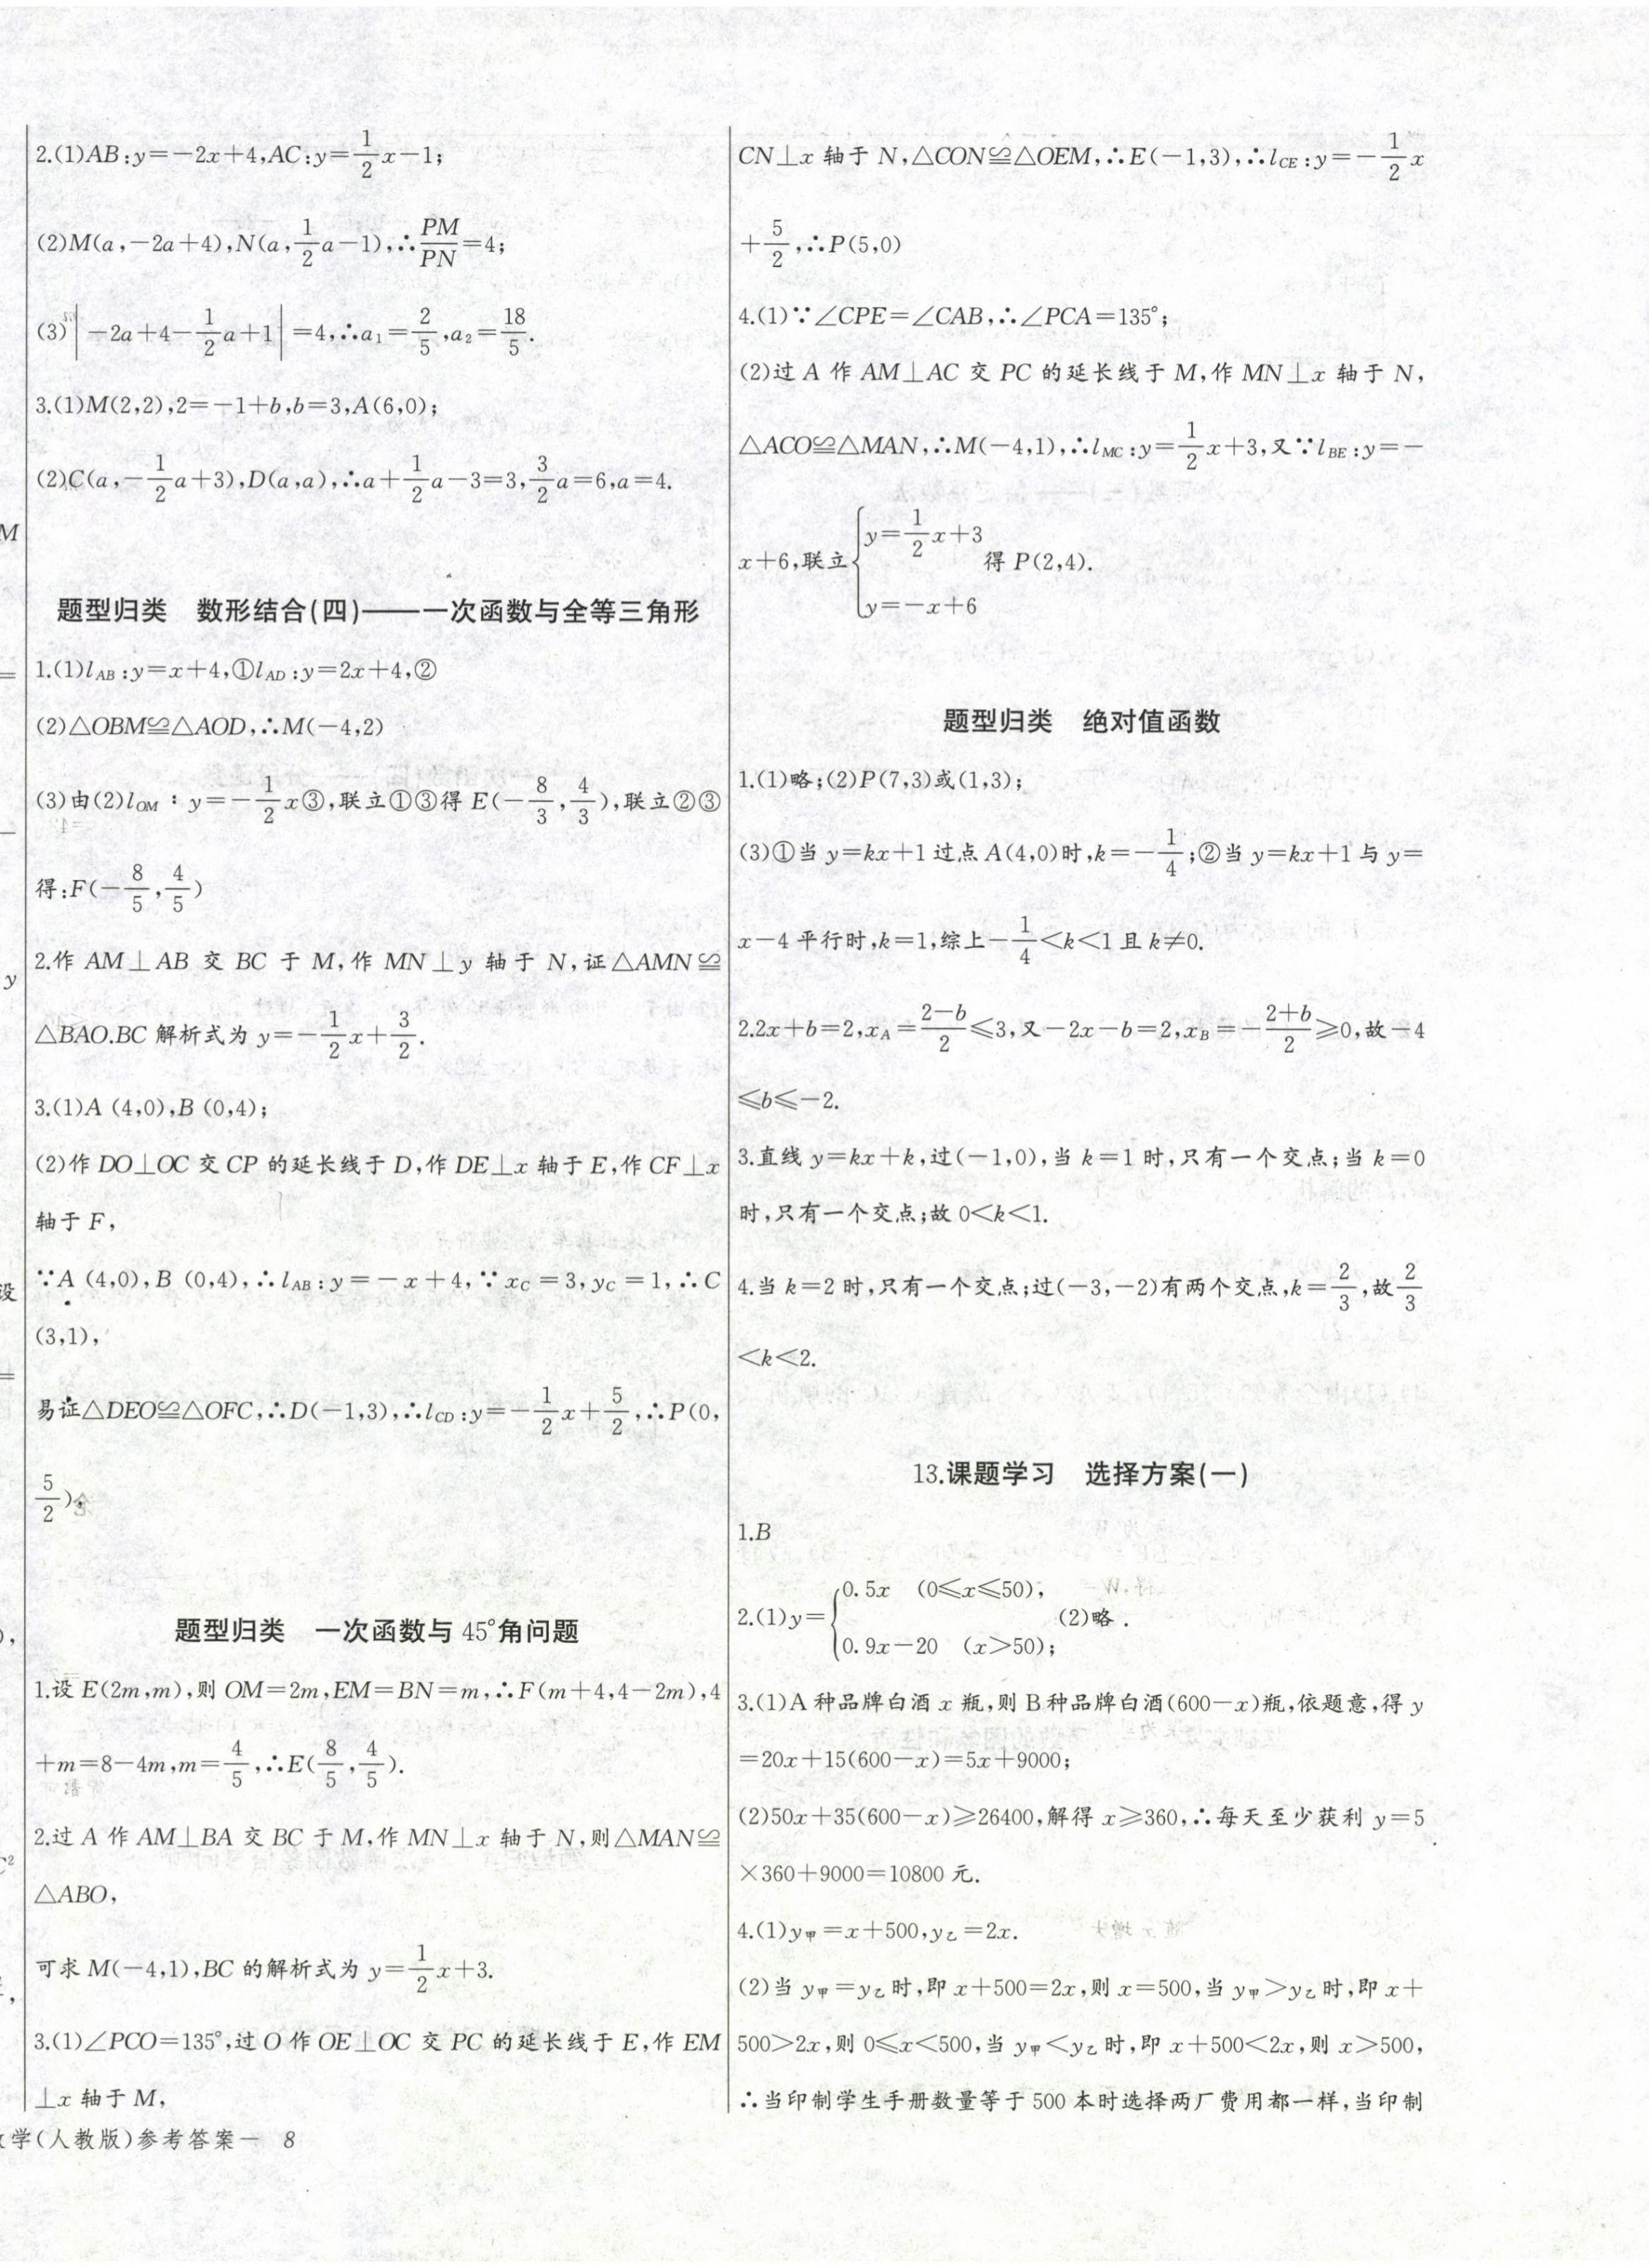 2.(1)AB:y=-2x+4,AC:y=\frac{1}{2}x-1;
(2)M(a,-2a+4),N(a,\frac{1}{2}a-1),∴\frac{PM}{PN}=4;
(3)|-2a+4-\frac{1}{2}a+1|=4,∴a₁=\frac{2}{5},a₂=\frac{18}{5}.
3.(1)M(2,2),2=-1+b,b=3,A(6,0);
(2)C(a,-\frac{1}{2}a+3),D(a,a),∴a+\frac{1}{2}a-3=3,\frac{3}{2}a=6,a=4.
题型归类 数形结合(四)——一次函数与全等三角形
1.(1)l_{AB}:y=x+4,①l_{AD}:y=2x+4,②
(2)△OBM≌△AOD,∴M(-4,2)
(3)由(2)l_{OM}:y=-\frac{1}{2}x③,联立①③得E(-\frac{8}{3},\frac{4}{3}),联立②③
得:F(-\frac{8}{5},\frac{4}{5})
2.作AM⊥AB交BC于M,作MN⊥y轴于N,证△AMN≌
△BAO.BC解析式为y=-\frac{1}{2}x+\frac{3}{2}.
3.(1)A(4,0),B(0,4);
(2)作DO⊥OC交CP的延长线于D,作DE⊥x轴于E,作CF⊥x
轴于F,
∵A(4,0),B(0,4),∴l_{AB}:y=-x+4,∵x_C=3,y_C=1,∴C
(3,1),
易证△DEO≌△OFC,∴D(-1,3),∴l_{CD}:y=-\frac{1}{2}x+\frac{5}{2},∴P(0,
\frac{5}{2});
题型归类 一次函数与45°角问题
1.设E(2m,m),则OM=2m,EM=BN=m,∴F(m+4,4-2m),4
+m=8-4m,m=\frac{4}{5},∴E(\frac{8}{5},\frac{4}{5}).
2.过A作AM⊥BA交BC于M,作MN⊥x轴于N,则△MAN≌
△ABO,
可求M(-4,1),BC的解析式为y=\frac{1}{2}x+3.
3.(1)∠PCO=135°,过O作OE⊥OC交PC的延长线于E,作EM
⊥x轴于M,
学(人教版)参考答案— 8
CN⊥x轴于N,△CON≌△OEM,∴E(-1,3),∴l_{CE}:y=-\frac{1}{2}x
+\frac{5}{2},∴P(5,0)
4.(1)∵∠CPE=∠CAB,∴∠PCA=135°;
(2)过A作AM⊥AC交PC的延长线于M,作MN⊥x轴于N,
△ACO≌△MAN,∴M(-4,1),∴l_{MC}:y=\frac{1}{2}x+3,又∵l_{BE}:y=-
x+6,联立{y=\frac{1}{2}x+3 y=-x+6 得P(2,4).
题型归类 绝对值函数
1.(1)略;(2)P(7,3)或(1,3);
(3)①当y=kx+1过点A(4,0)时,k=-\frac{1}{4};②当y=kx+1与y=
x-4平行时,k=1,综上-\frac{1}{4}<k<1且k≠0.
2.2x+b=2,x_A=\frac{2-b}{2}≤3,又-2x-b=2,x_B=-\frac{2+b}{2}≥0,故-4
≤b≤-2.
3.直线y=kx+k,过(-1,0),当k=1时,只有一个交点;当k=0
时,只有一个交点;故0<k<1.
4.当k=2时,只有一个交点;过(-3,-2)有两个交点,k=\frac{2}{3},故\frac{2}{3}
<k<2.
13.课题学习 选择方案(一)
1.B
2.(1)y={0.5x (0≤x≤50), 0.9x-20 (x>50); (2)略.
3.(1)A种品牌白酒x瓶,则B种品牌白酒(600-x)瓶,依题意,得y
=20x+15(600-x)=5x+9000;
(2)50x+35(600-x)≥26400,解得x≥360,∴每天至少获利y=5
×360+9000=10800元.
4.(1)y甲=x+500,y乙=2x.
(2)当y甲=y乙时,即x+500=2x,则x=500,当y甲>y乙时,即x+
500>2x,则0≤x<500,当y甲<y乙时,即x+500<2x,则x>500,
∴当印制学生手册数量等于500本时选择两厂费用都一样,当印制